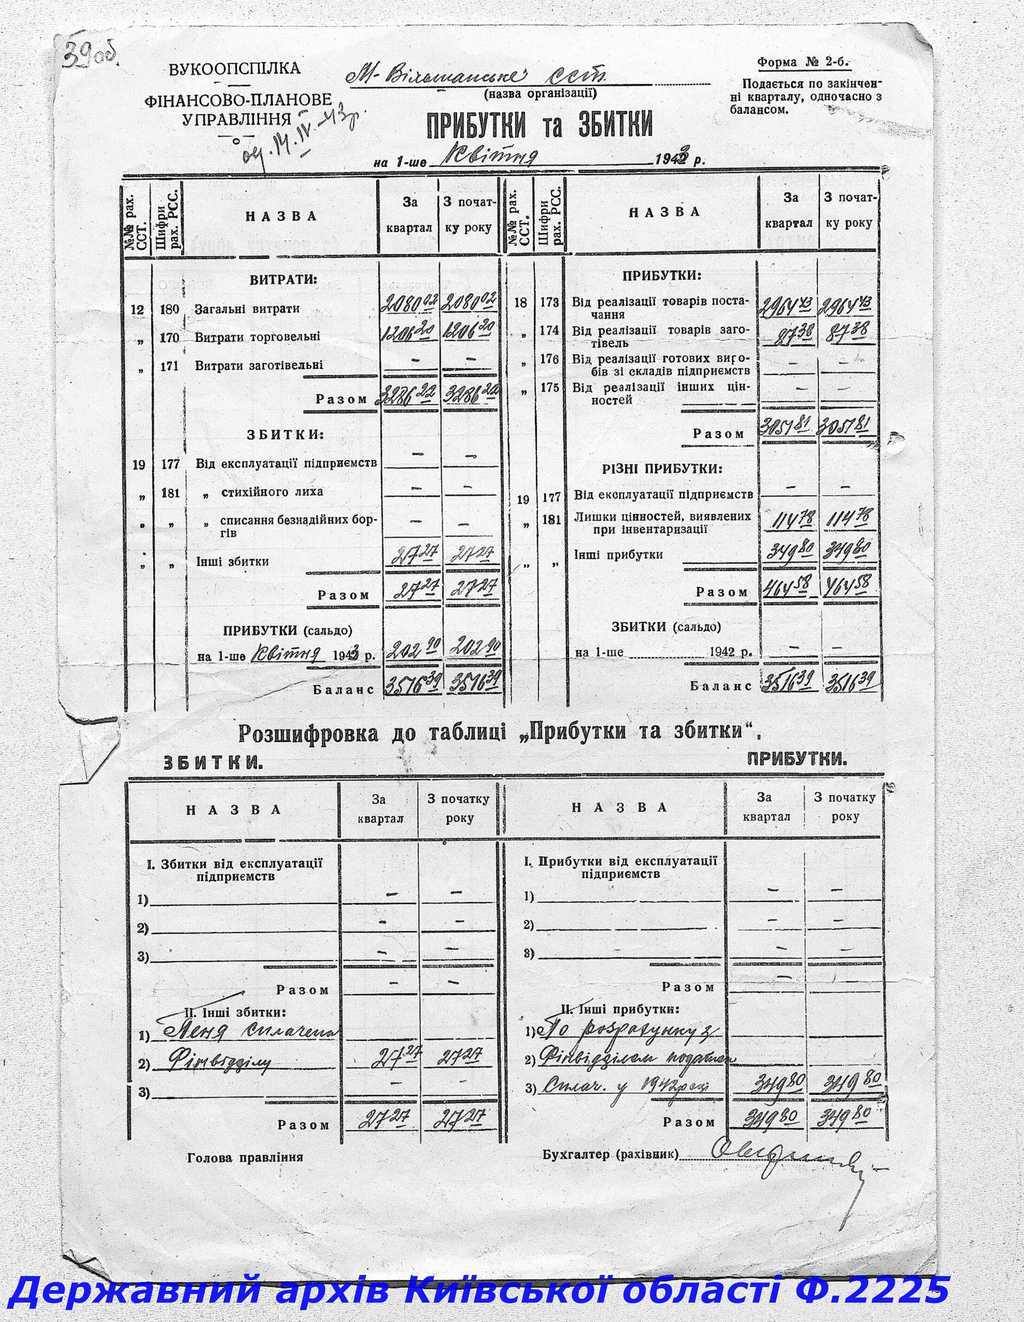 39 об.
ВУКООПСПІЛКА
ФІНАНСОВО-ПЛАНОВЕ
УПРАВЛІННЯ
од. 14.IV-43р.
М-Вільшанське ССТ.
(назва організації)
ПРИБУТКИ та ЗБИТКИ
на 1-ше Квітня 1943 р.
Форма № 2-б.
Подається по закінчен-
ні кварталу, одночасно з
балансом.
№№ рах. ССТ. Шифри рах. РСС. НАЗВА За квартал З почат-ку року
ВИТРАТИ:
12 180 Загальні витрати 2080 02 2080 02
„ 170 Витрати торговельні 1206 20 1206 20
„ 171 Витрати заготівельні — —
Разом 3286 22 3286 22
ЗБИТКИ:
19 177 Від експлуатації підприємств — —
„ 181 „ стихійного лиха — —
„ „ „ списання безнадійних бор-
гів — —
„ „ Інші збитки 27 27 27 27
Разом 27 27 27 27
ПРИБУТКИ (сальдо)
на 1-ше Квітня 1943 р. 202 90 202 90
Баланс 3516 39 3516 39
№№ рах. ССТ. Шифри рах. РСС. НАЗВА За квартал З почат-ку року
ПРИБУТКИ:
18 173 Від реалізації товарів поста-
чання 2964 43 2964 43
„ 174 Від реалізації товарів заго-
тівель 87 38 87 38
„ 176 Від реалізації готових виро-
бів зі складів підприємств — —
„ 175 Від реалізації інших цін-
ностей — —
Разом 3051 81 3051 81
РІЗНІ ПРИБУТКИ:
19 177 Від експлуатації підприємств — —
„ 181 Лишки цінностей, виявлених
при інвентаризації 114 78 114 78
„ „ Інші прибутки 349 80 349 80
Разом 464 58 464 58
ЗБИТКИ (сальдо)
на 1-ше 1942 р. — —
Баланс 3516 39 3516 39
Розшифровка до таблиці „Прибутки та збитки“.
ЗБИТКИ.
НАЗВА За квартал З початку року
І. Збитки від експлуатації
підприємств
1) — —
2) — —
3) — —
Разом — —
ІІ. Інші збитки:
1) Пеня сплачена
2) Фінвідділу 27 27 27 27
3) — —
Разом 27 27 27 27
Голова правління
ПРИБУТКИ.
НАЗВА За квартал З початку року
І. Прибутки від експлуатації
підприємств
1) — —
2) — —
3) — —
Разом —
ІІ. Інші прибутки:
1) По розрахунку з
2) Фінвідділом податок
3) Сплач. у 1942 році 349 80 349 80
Разом 349 80 349 80
Бухгалтер (рахівник)
Державний архів Київської області Ф.2225